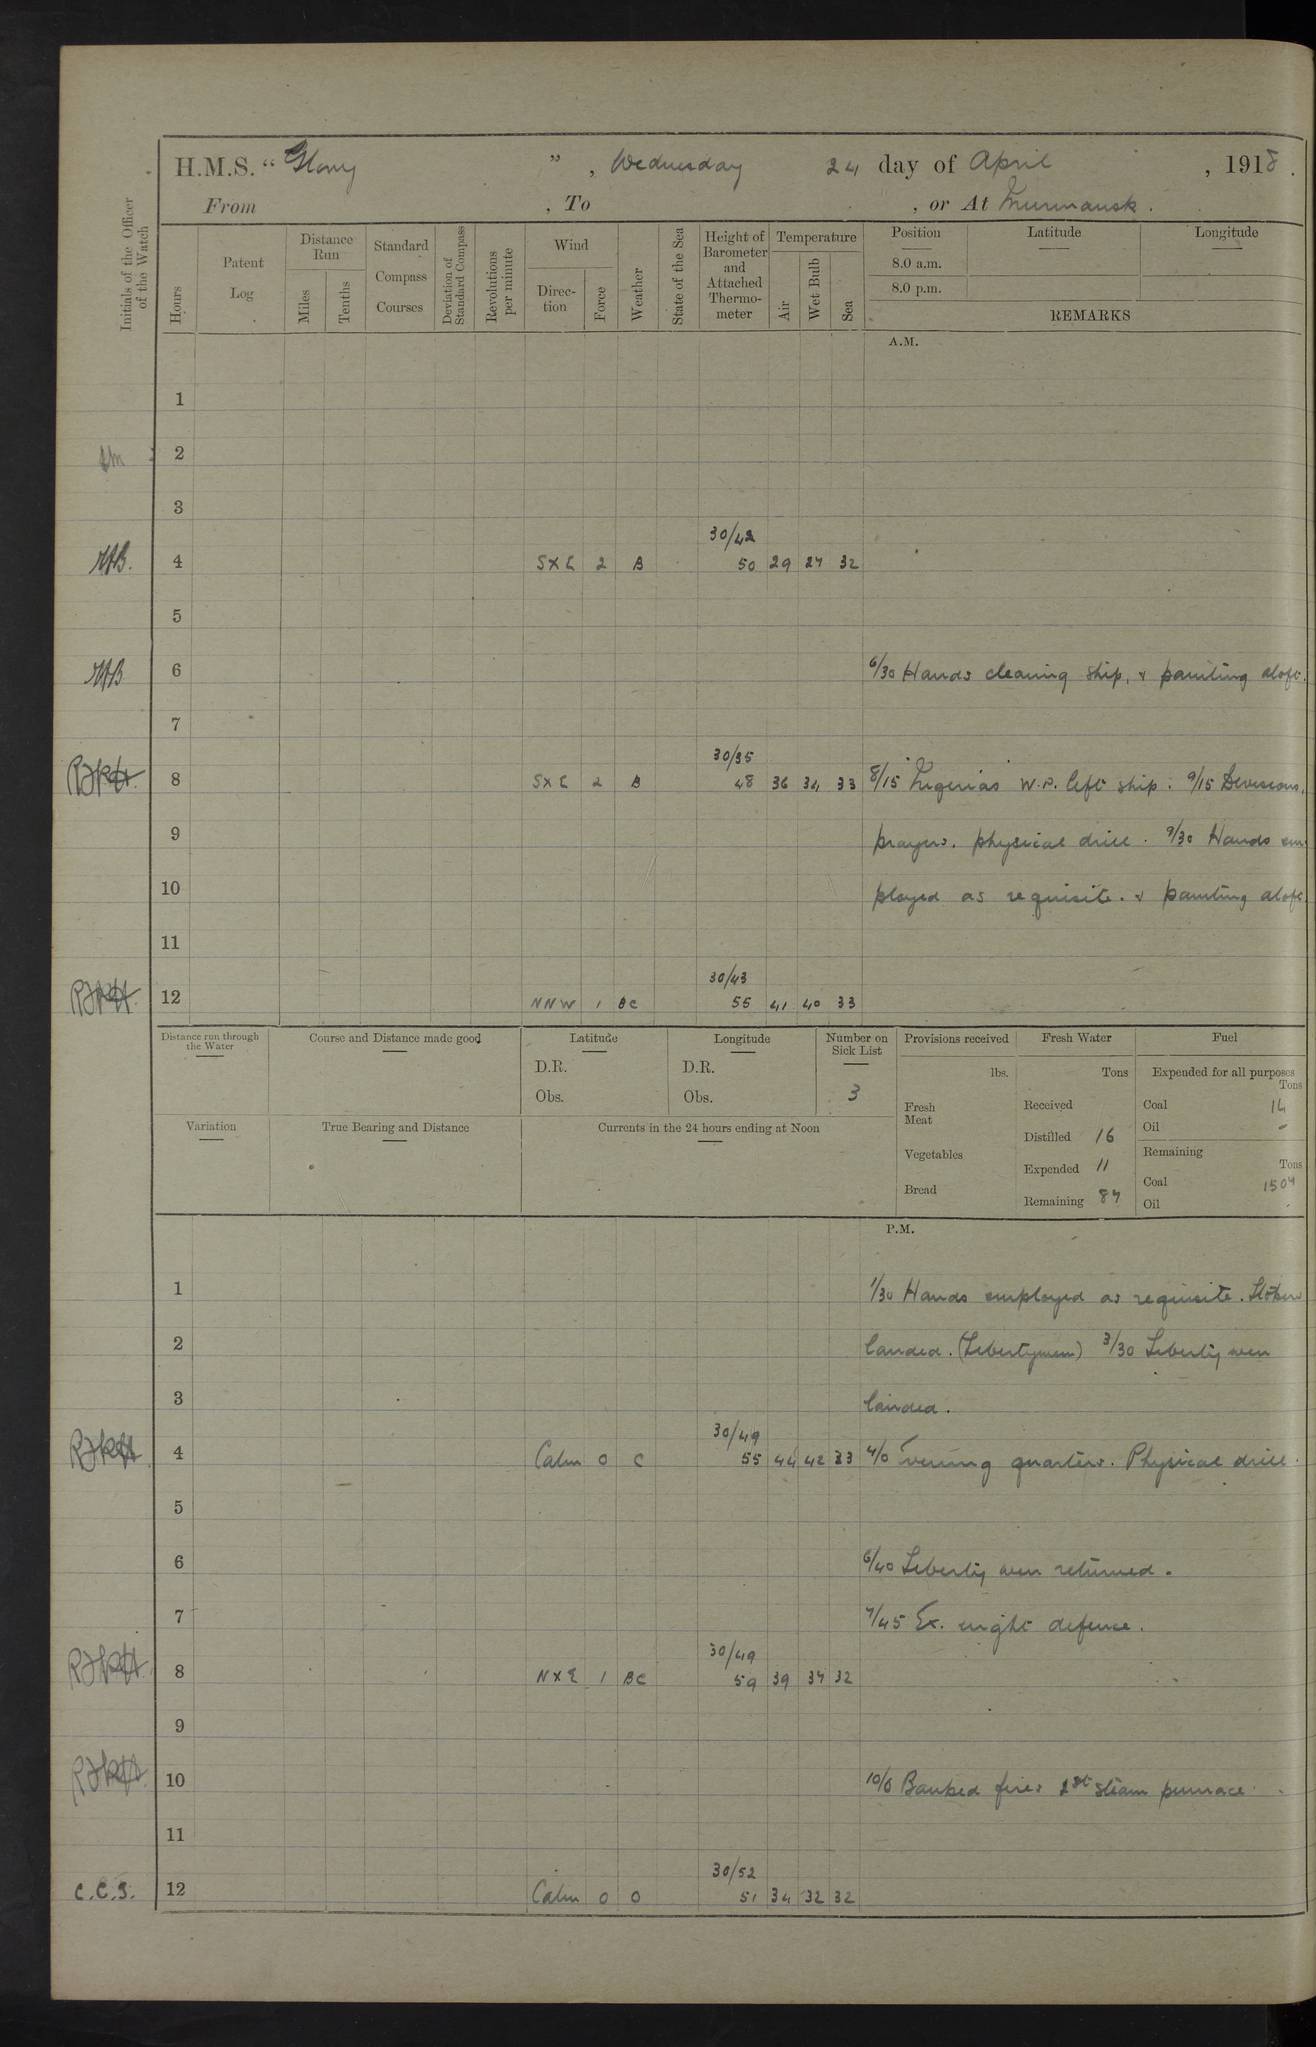 H.M.S. “ Glory ”, Wednesday 24 day of April, 1918.
From , To , or At Murmansk.
Initials of the Officer of the Watch
Hours
Patent Log
Distance Run
Miles
Tenths
Standard Compass Courses
Deviation of Standard Compass
Revolutions per minute
Wind
Direction
Force
Weather
State of the Sea
Height of Barometer and Attached Thermometer
Temperature
Air
Wet Bulb
Sea
Position
8.0 a.m.
8.0 p.m.
Latitude
Longitude
REMARKS
A.M.
1
2
3
30/42
4 SXE 2 B 50 29 27 32
5
6 6/30 Hands cleaning ship, & painting aloft.
7
30/35
8 SXE 2 B 48 36 34 33 8/15 W.P. left ship. 9/15 Divisions,
9 prayers. physical drill. 9/30 Hands em-
10 ployed as requisite. & painting aloft.
11
30/43
12 NNW 1 BC 55 41 40 33
Distance run through the Water
Course and Distance made good
Latitude
D.R.
Obs.
Longitude
D.R.
Obs.
Number on Sick List
3
Provisions received
lbs.
Fresh Meat
Vegetables
Bread
Fresh Water
Tons
Received
Distilled 16
Expended 11
Remaining 87
Fuel
Expended for all purposes
Tons
Coal 14
Oil -
Remaining
Tons
Coal 1507
Oil
Variation
True Bearing and Distance
Currents in the 24 hours ending at Noon
P.M.
1 1/30 Hands employed as requisite. Stokers
2 landed. (Libertymen) 3/30 Liberty men
3 landed.
30/49
4 Calm 0 C 55 44 42 33 4/0 Evening quarters. Physical drill.
5
6 6/40 Liberty men returned.
7 7/45 Ex. night defence.
30/49
8 NXE 1 BC 59 39 37 32
9
10 10/0 Banked fires 2nd steam pinnace
11
30/52
C.C.S. 12 Calm 0 O 51 34 32 32